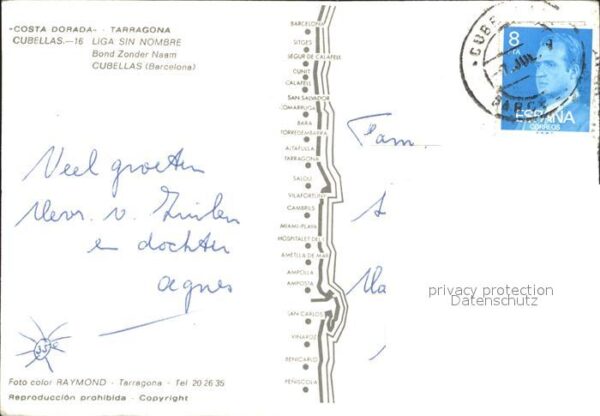 «COSTA DORADA» - TARRAGONA
CUBELLAS.—16 LIGA SIN NOMBRE
Bond Zonder Naam
CUBELLAS (Barcelona)
Veel groeten
Mevr. v. Zuilen
en dochter
agnes
Foto color RAYMOND - Tarragona - Tel 20 26 35
Reproducción prohibida - Copyright
BARCELONA
SITGES
SEGUR DE CALAFELL
CUNIT
CALAFELL
SAN SALVADOR
COMARRUGA
BARA
TORREDEMBARRA
ALTAFULLA
TARRAGONA
SALOU
VILAFORTUNY
CAMBRILS
MIAMI-PLAYA
HOSPITALET DEL
AMETLLA DE MAR
AMPOLLA
AMPOSTA
SAN CARLOS
VINAROZ
BENICARLO
PEÑISCOLA
8 PTA
ESPAÑA
CORREOS
Fam.
Ma
privacy protection
Datenschutz